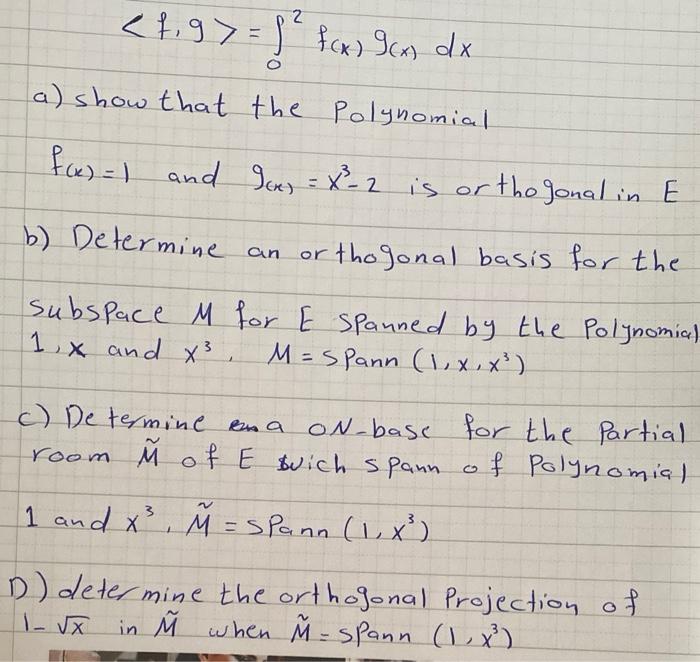 <f,g> = ∫₀² f(x) g(x) dx
a) show that the Polynomial
f(x) = 1 and g(x) = x³-2 is orthogonal in E
b) Determine an orthogonal basis for the
subspace M for E spanned by the Polynomial
1, x and x³, M = spann (1, x, x³)
c) Determine a ON-base for the Partial
room M̃ of E wich spann of Polynomial
1 and x³, M̃ = spann (1, x³)
D) determine the orthogonal Projection of
1-√x in M̃ when M̃ = spann (1, x³)